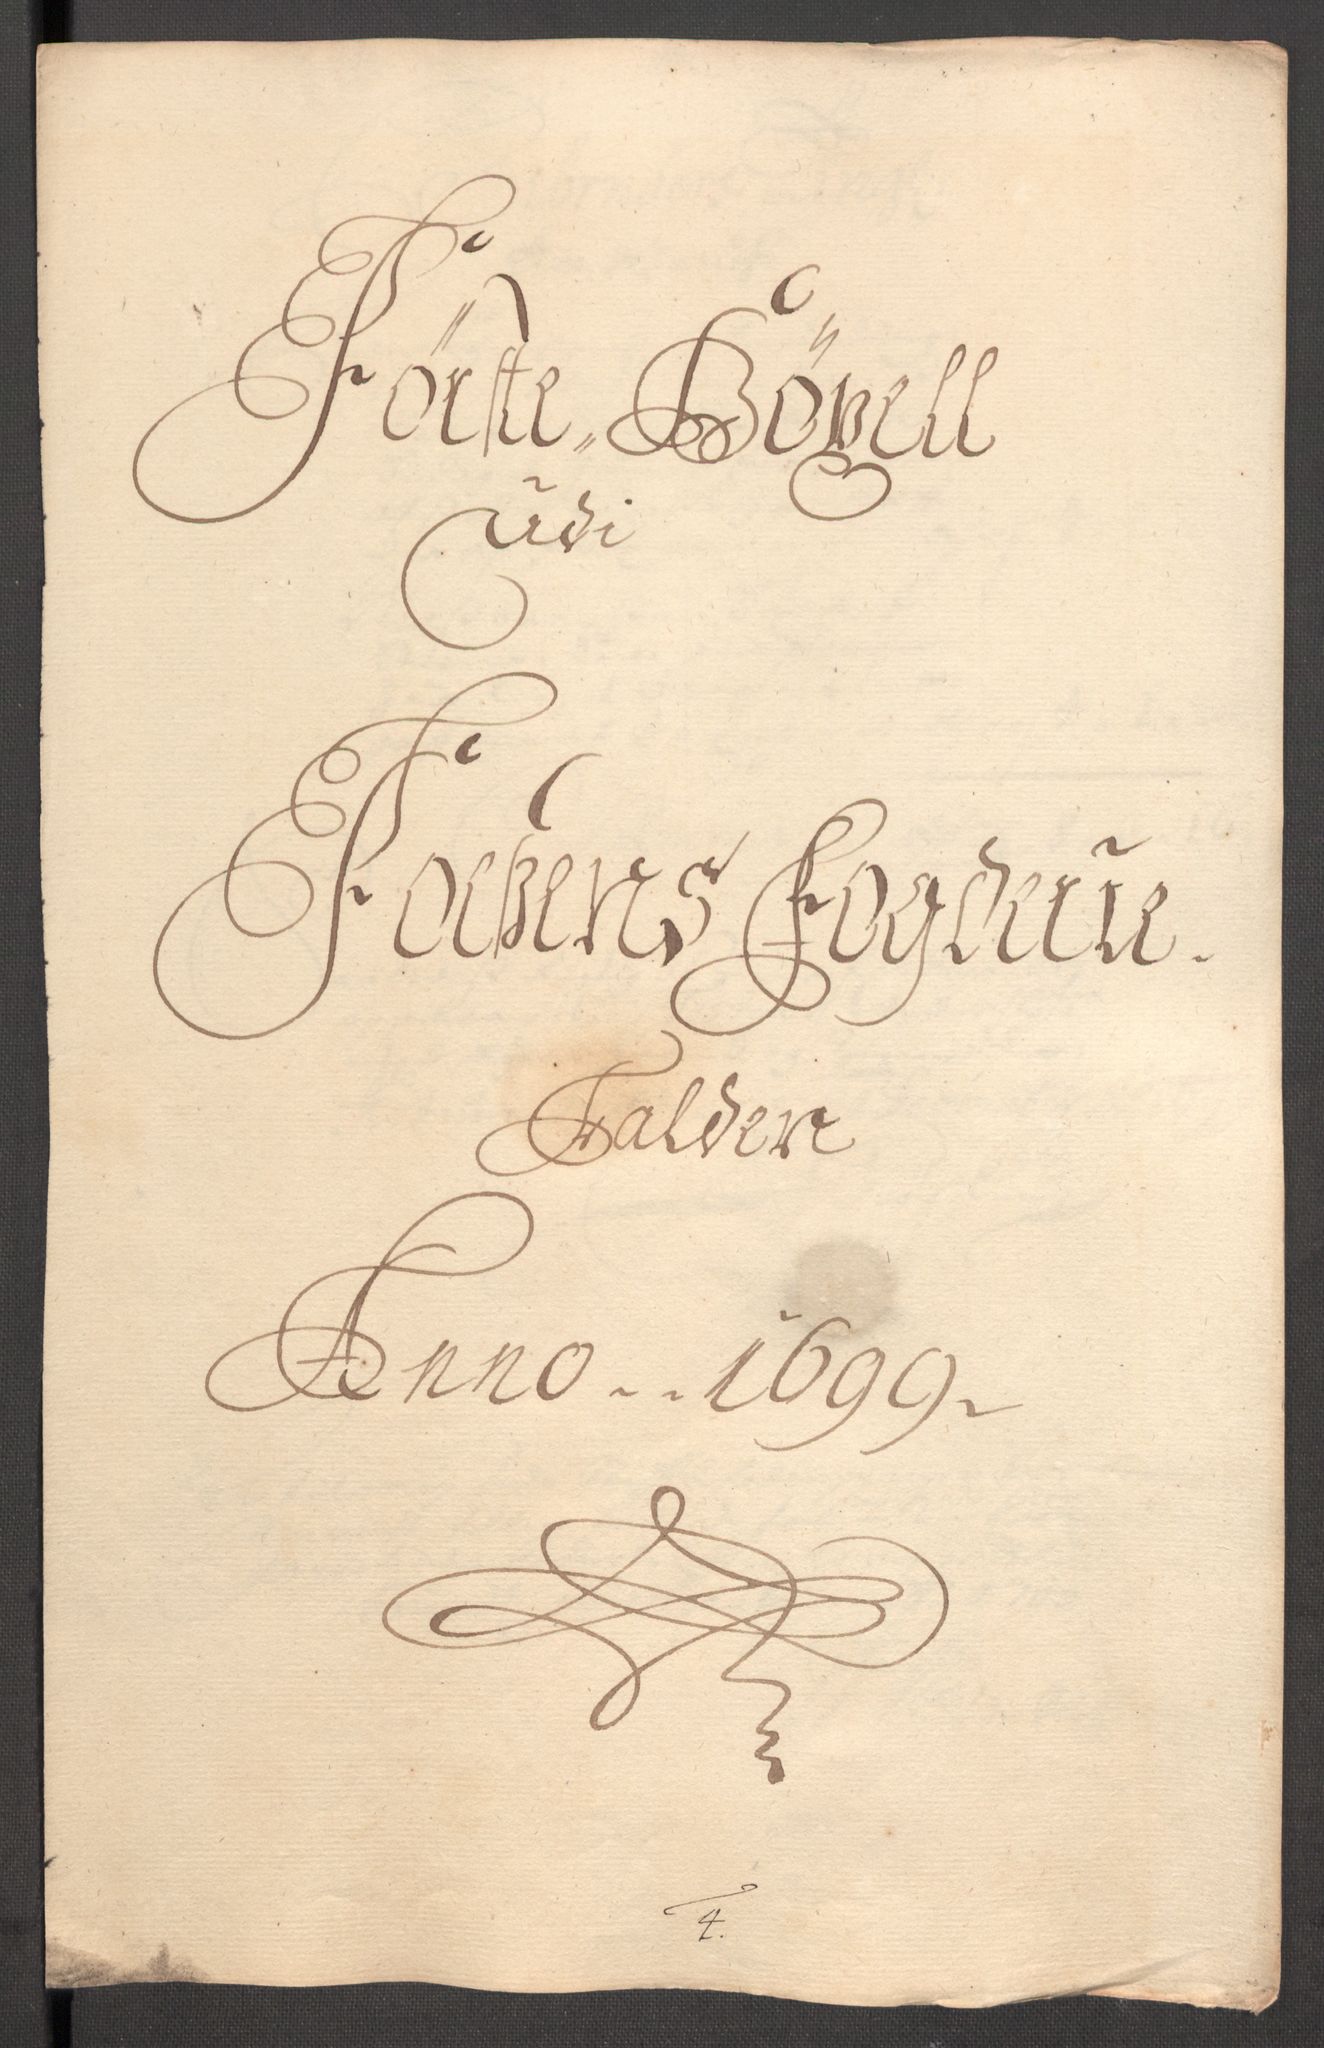 Förste Böxell
udi
Foesens Fogderie.
Falden
Anno 1699
4.